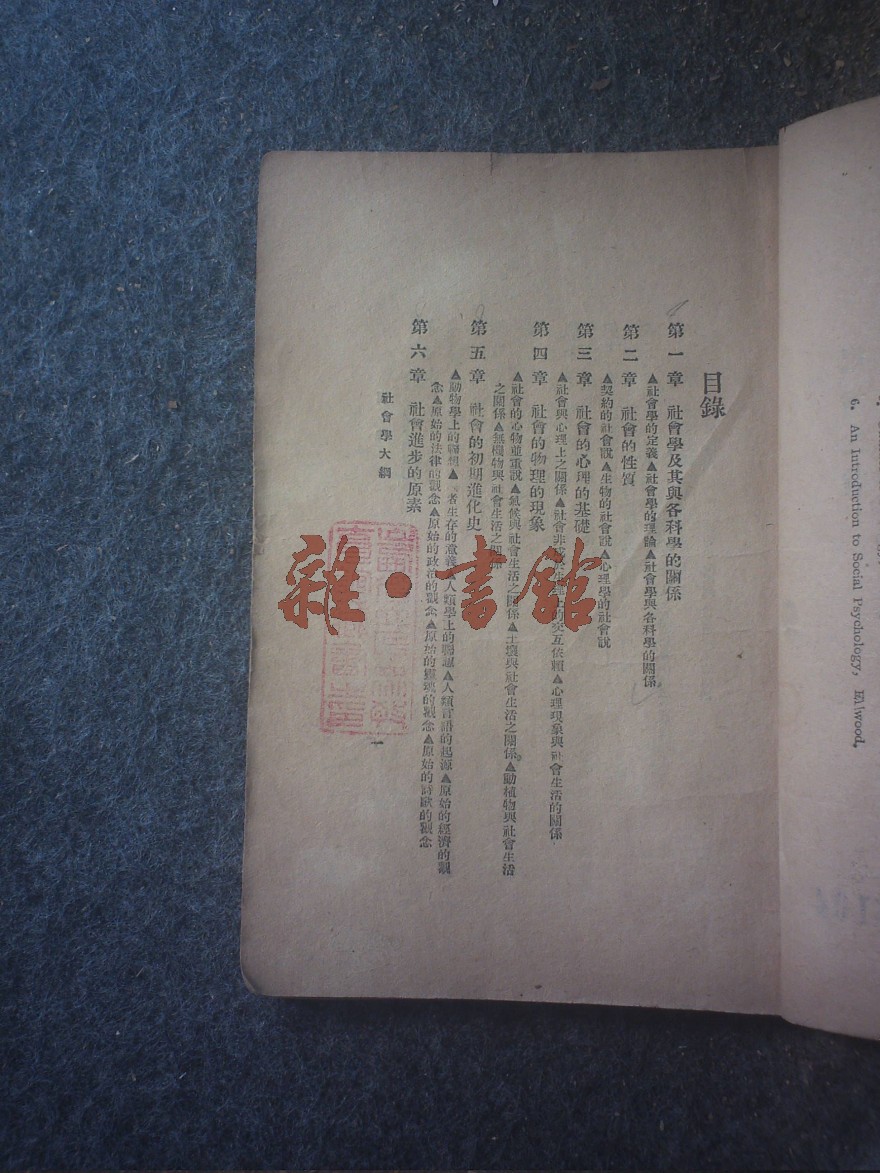 目錄
第一章　社會學及其與各科學的關係
▲社會學的定義▲社會學的理論▲社會學與各科學的關係
第二章　社會的性質
▲契約的社會說▲生物的社會說▲心理學的社會說
第三章　社會的心理的基礎
▲社會與心理上之關係▲社會非
交互依賴▲心理現象與社會生活的關係
第四章　社會的物理的現象
▲社會的心物並重說▲氣候與社會生活之關係▲土壤與社會生活之關係▲動植物與社會生活
之關係▲無機物與社會生活之關係
第五章　社會的初期進化史
▲動物學上的
者生存的意義▲人類學上的
▲人類言語的起源▲原始的經濟的觀
念▲原始的法律的觀念▲原始的政治的觀念▲原始的靈魂的觀念▲原始的詩歌的觀念
第六章　社會進步的原素
社會學大綱
一
雜・書館
6. An Introduction to Social Psychology, Ellwood.